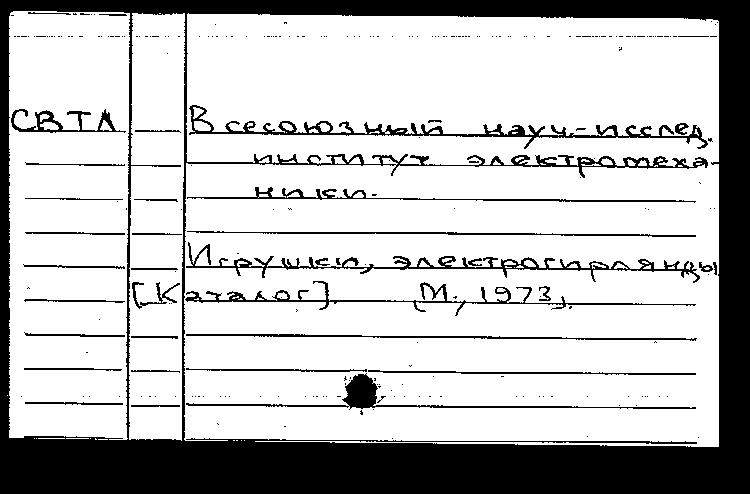 СВТЛ Всесоюзный науч.-исслед.
институт электромеха-
ники.
Игрушки, электрогирлянды
[Каталог]. [М., 1973].